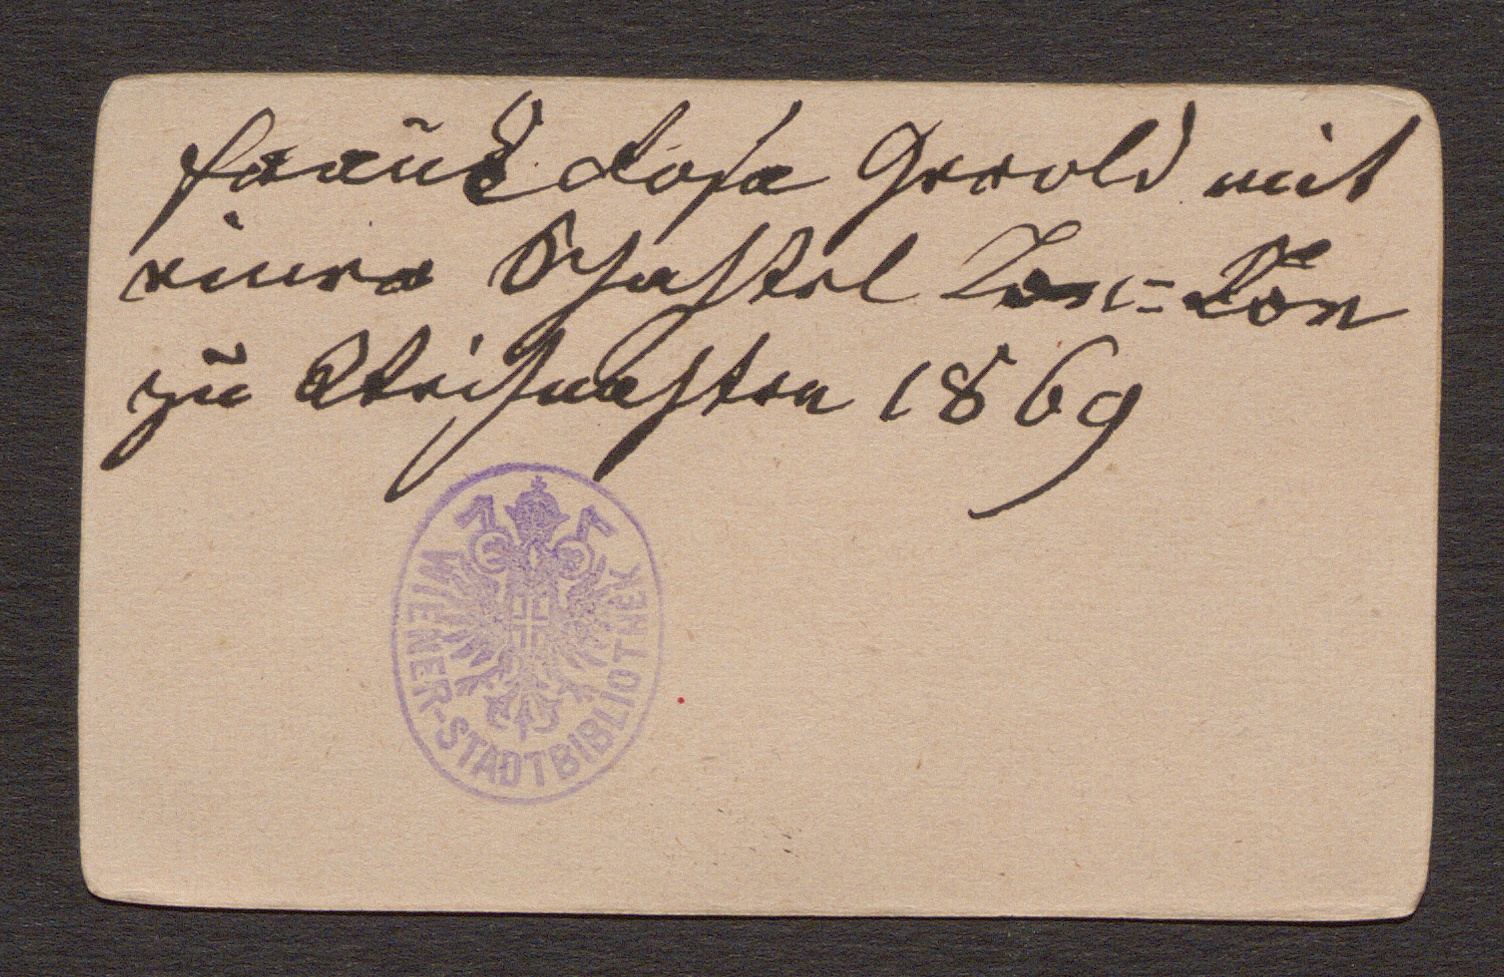 Fräul. Rosa Gerold mit
einer Schachtel Bon=Bon
zu Weihnachten 1869
WIENER-STADTBIBLIOTHEK